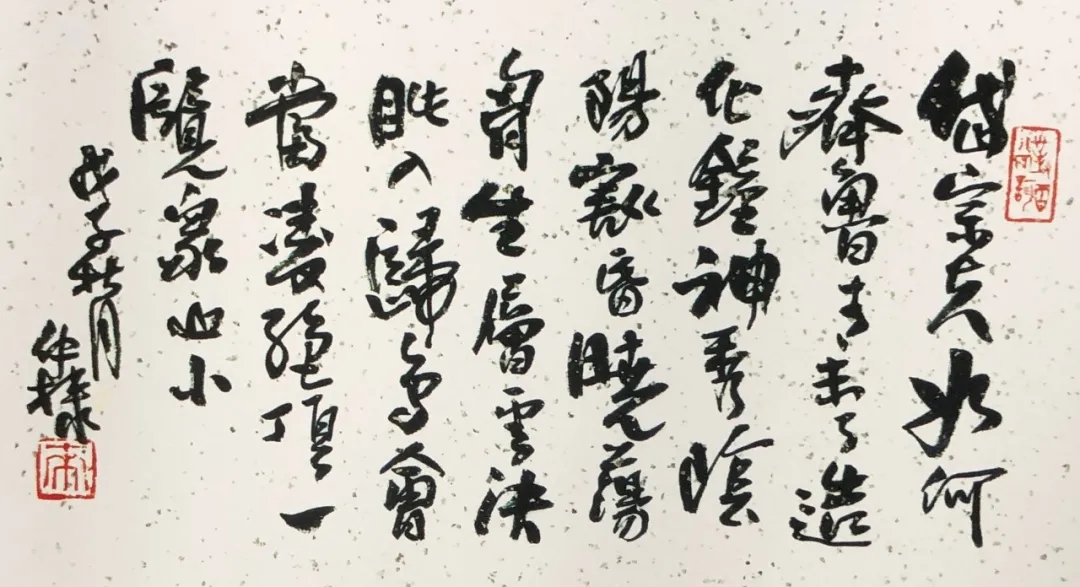 岱宗夫如何
齊魯青未了造
化鐘神秀陰
陽割昏曉蕩
胷生層雲決
眦入歸鳥會
當凌絕頂一
覽衆山小
戊子秋月